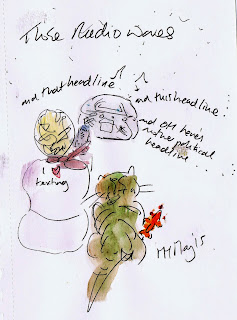 Those Radio waves
and that headline...
and this headline...
and oh never
native political
headline...
I ❤
texting
MMaj 15